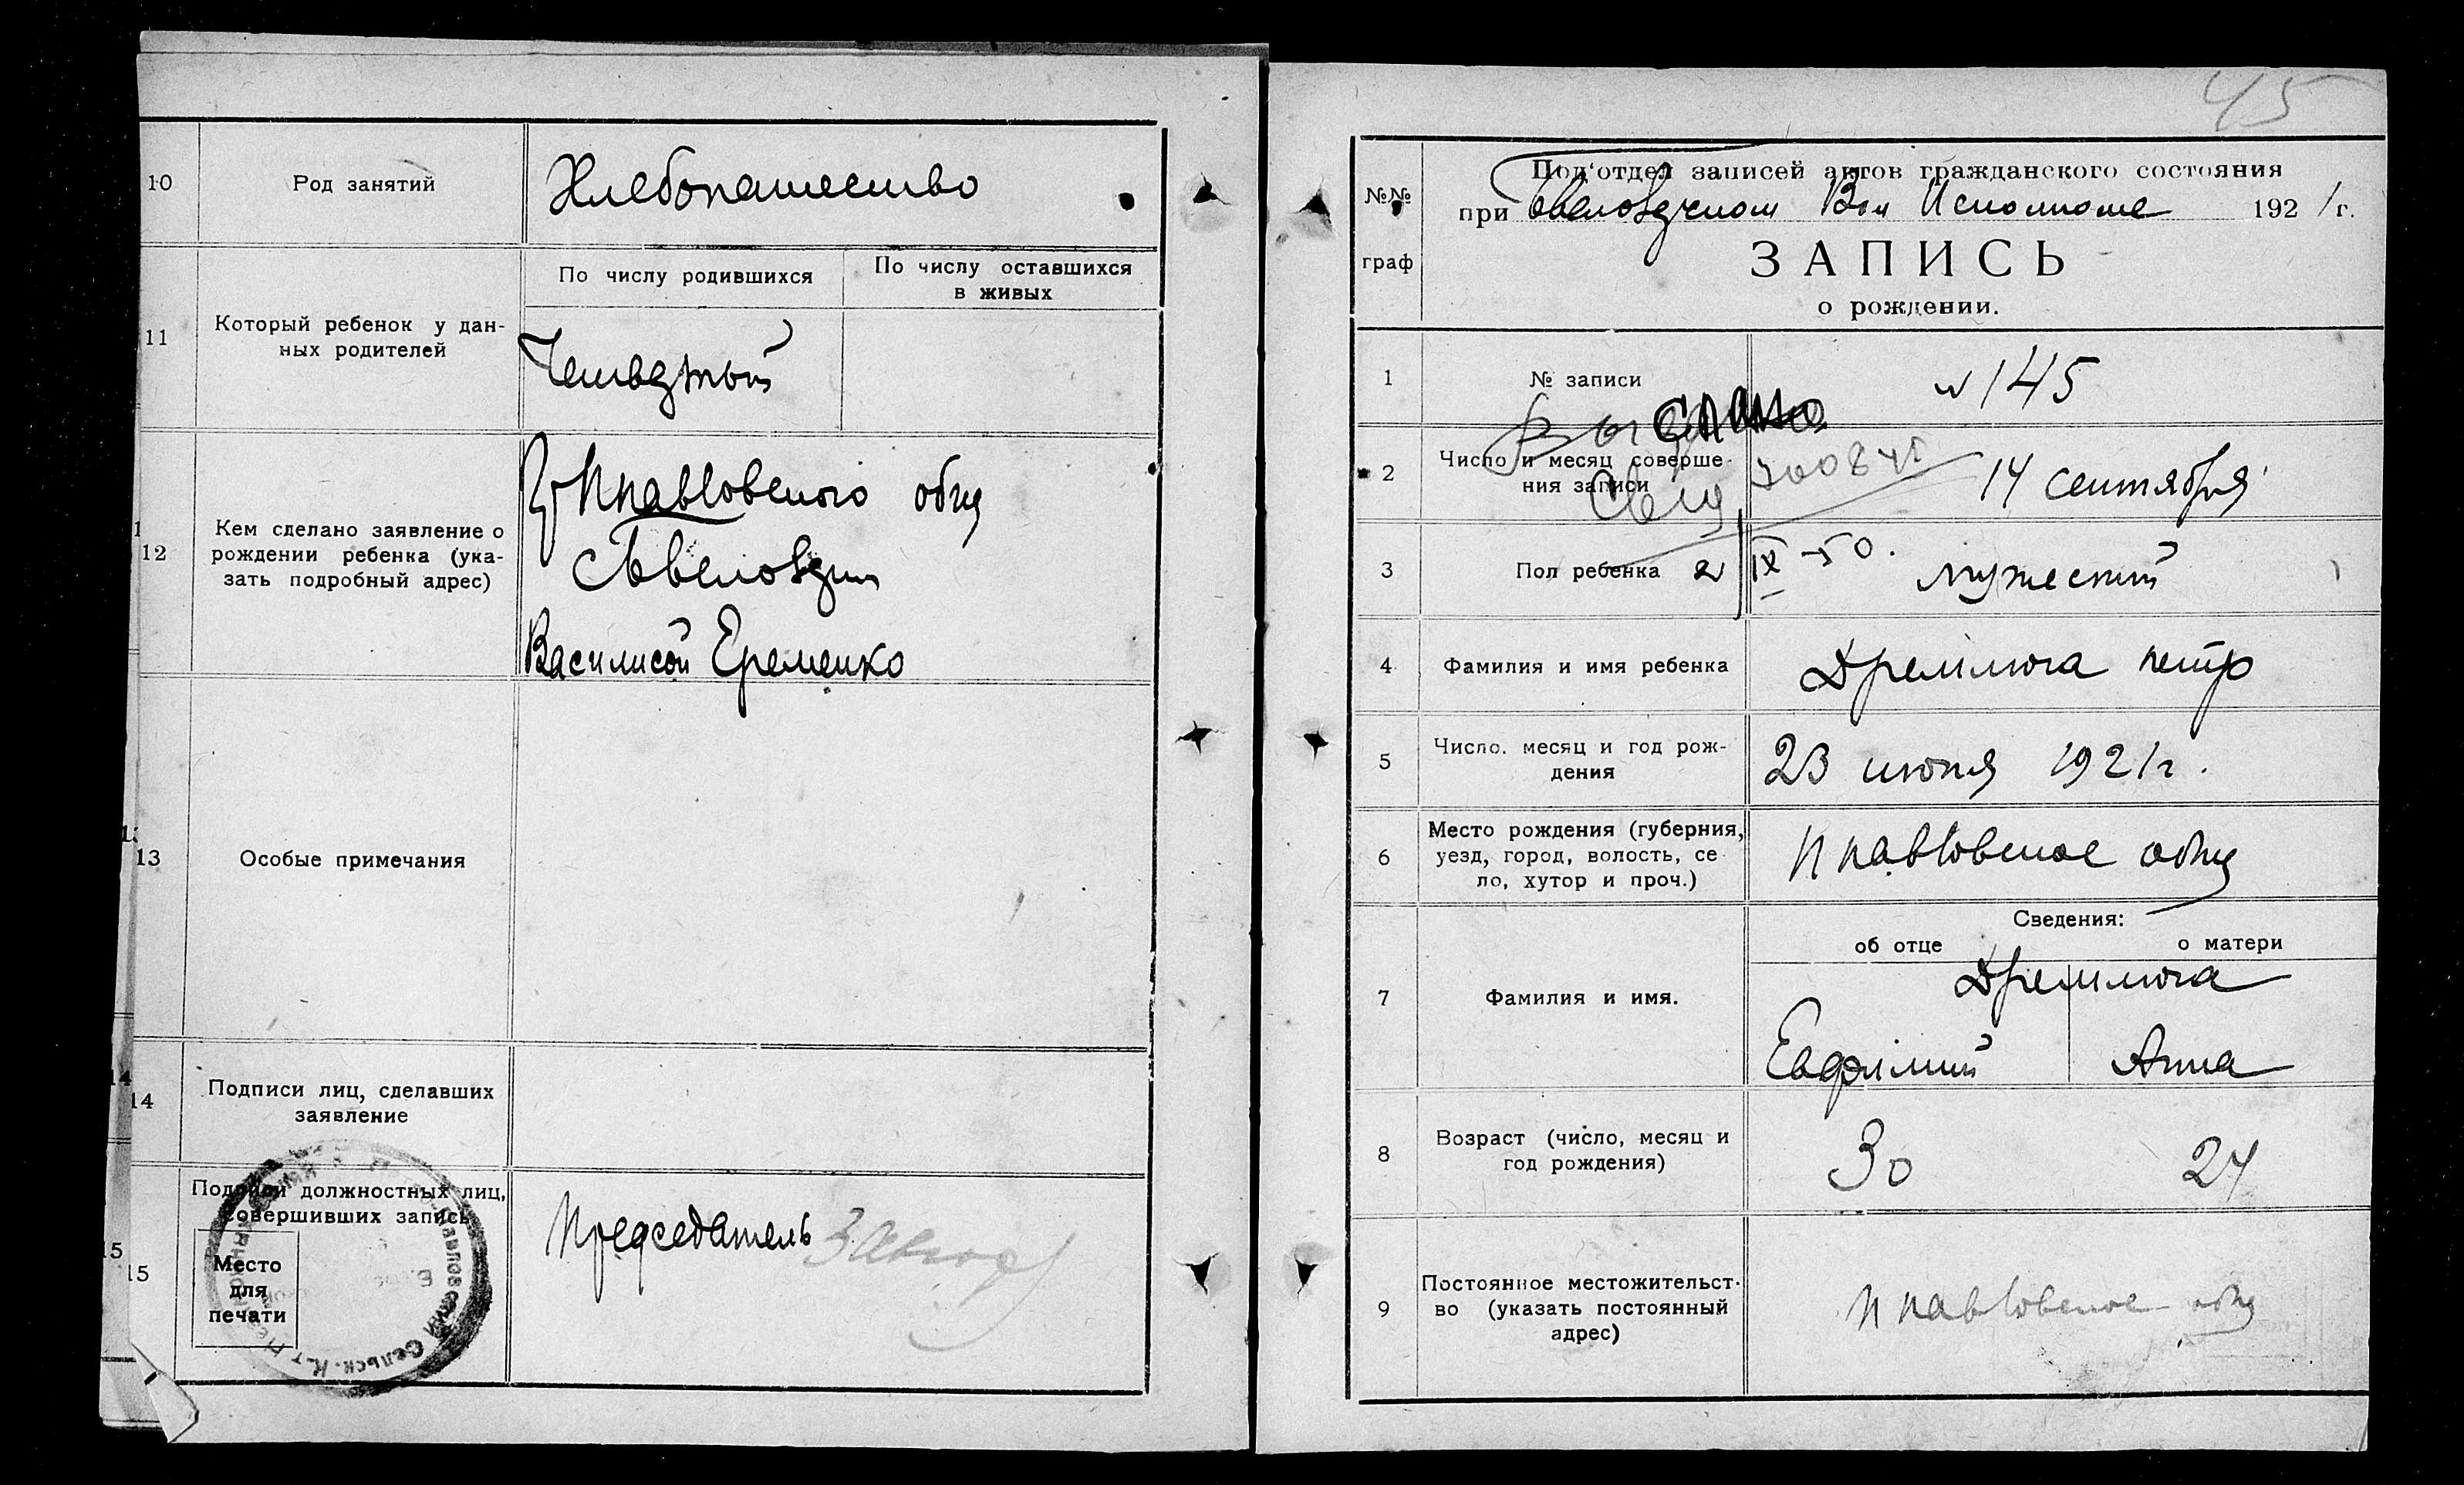 10
Род занятий
Хлебопашество
11
Который ребенок у дан-
ных родителей
По числу родившихся
По числу оставшихся
в живых
Четвертый
12
Кем сделано заявление о
рождении ребенка (ука-
зать подробный адрес)
Ппавловского общ
Василисой Еременко
13
Особые примечания
14
Подписи лиц, сделавших
заявление
15
Подписи должностных лиц,
совершивших запись
Место
для
печати
Председатель
45
№№
граф
Под'отдел записей актов гражданского состояния
при Вол Исполкоме 1921г.
ЗАПИСЬ
о рождении.
1
№ записи
№ 145
2
Число и месяц соверше-
ния записи
14 сентября
3
Пол ребенка
2/IX-50.
мужеский
4
Фамилия и имя ребенка
Дремлюга петр
5
Число. месяц и год рож-
дения
23 июня 1921г.
6
Место рождения (губерния,
уезд, город, волость, се-
ло, хутор и проч.)
Ппавловское общ
7
Фамилия и имя.
Сведения:
об отце
о матери
Дремлюга
Евфимий
Анна
8
Возраст (число, месяц и
год рождения)
30
24
9
Постоянное местожительст-
во (указать постоянный
адрес)
Ппавловское общ